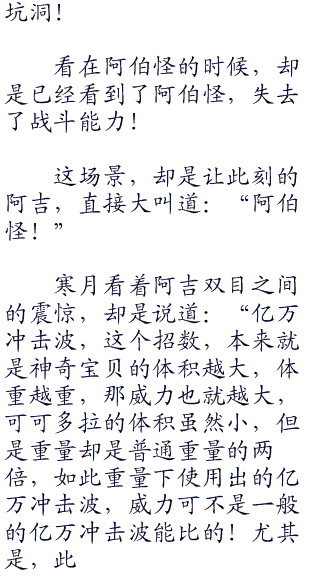 坑洞！
看在阿伯怪的时候，却
是已经看到了阿伯怪，失去
了战斗能力！
这场景，却是让此刻的
阿吉，直接大叫道：“阿伯
怪！”
寒月看着阿吉双目之间
的震惊，却是说道：“亿万
冲击波，这个招数，本来就
是神奇宝贝的体积越大，体
重越重，那威力也就越大，
可可多拉的体积虽然小，但
是重量却是普通重量的两
倍，如此重量下使用出的亿
万冲击波，威力可不是一般
的亿万冲击波能比的！尤其
是，此